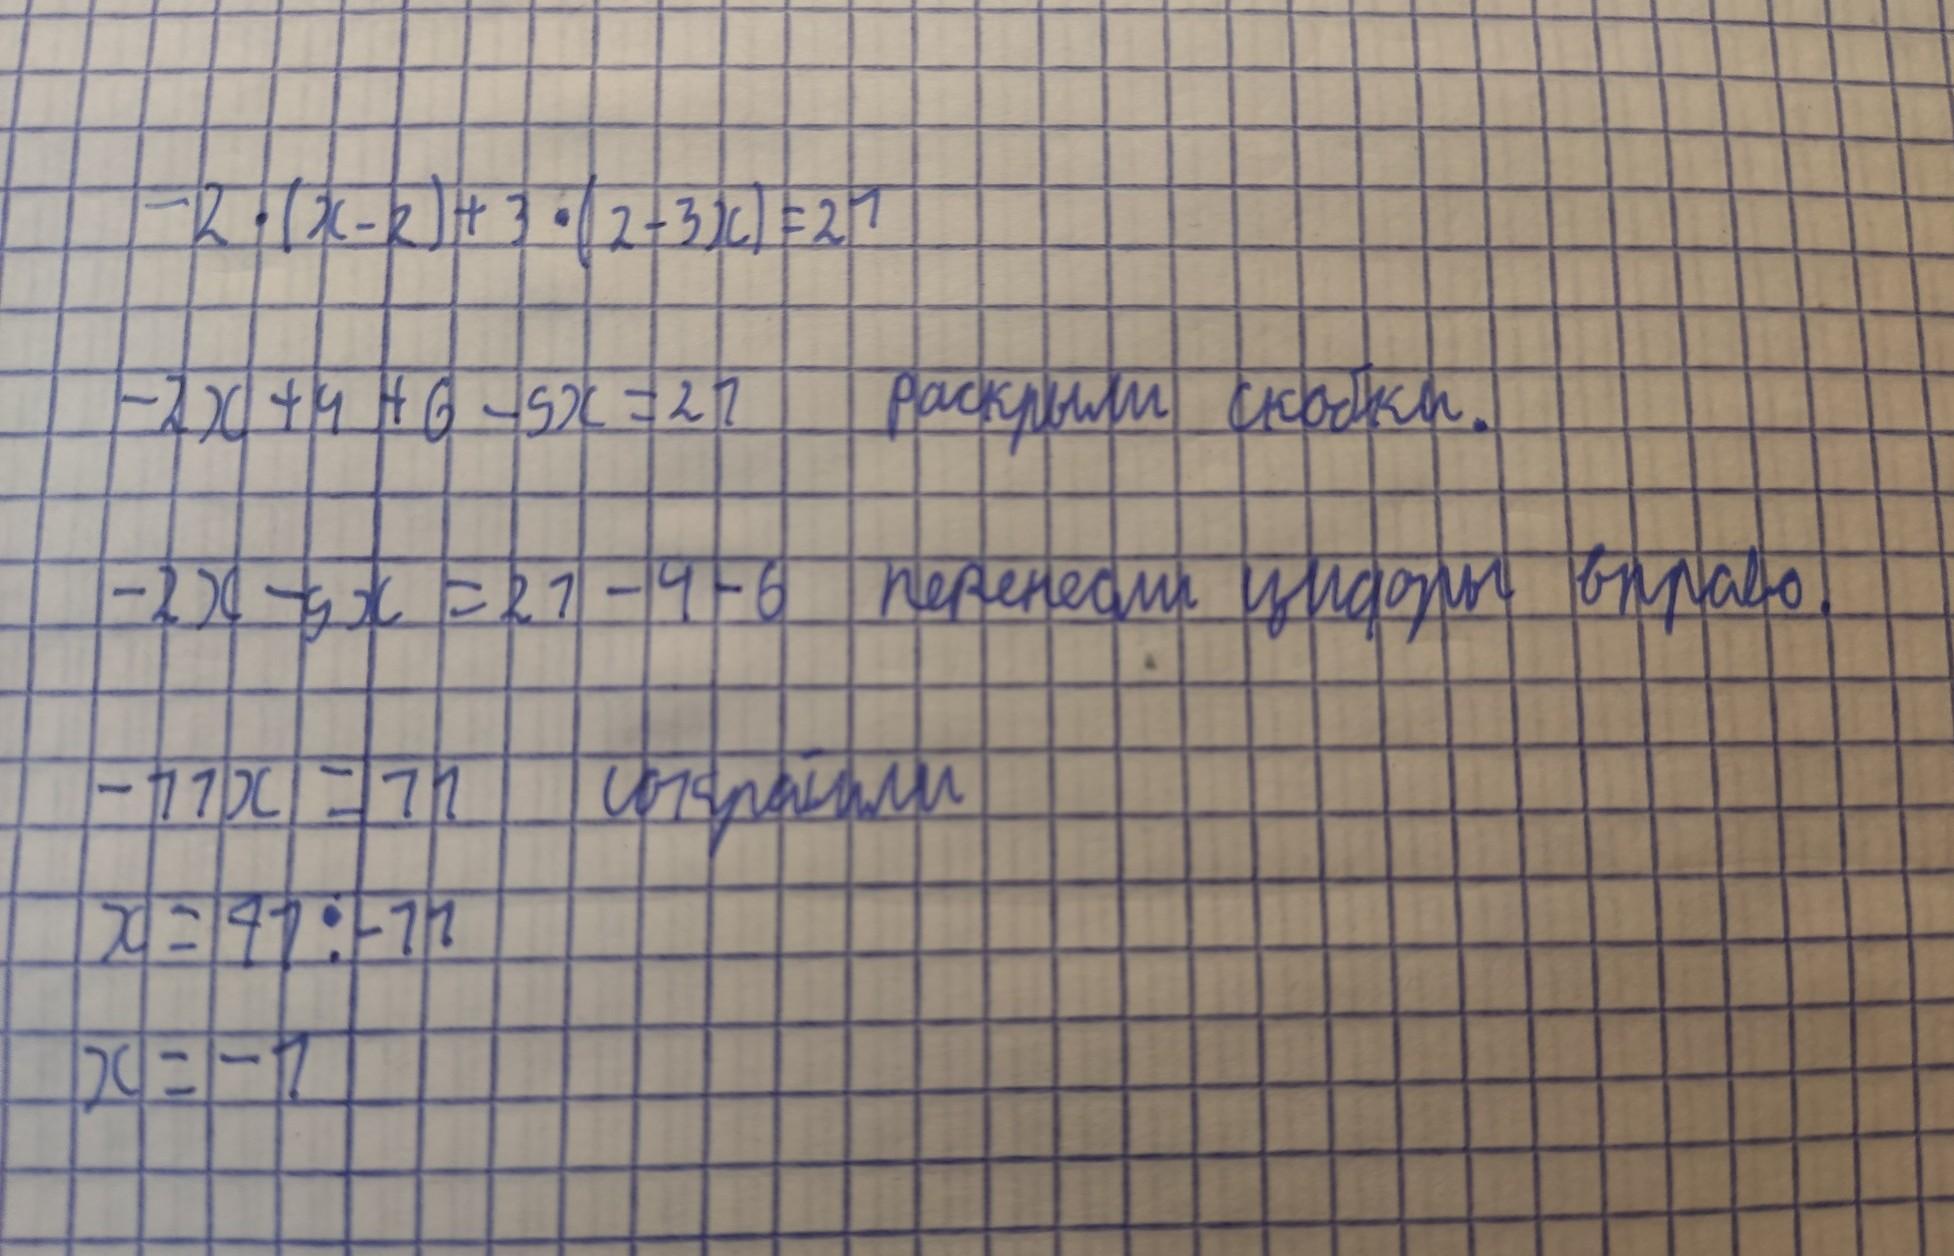 -2·(x-2)+3·(2-3x)=21
-2x+4+6-9x=21 раскрыли скобки.
-2x-9x=21-4-6 перенесли цифры вправо.
-11x=11 сократили
x=11:-11
x=-1